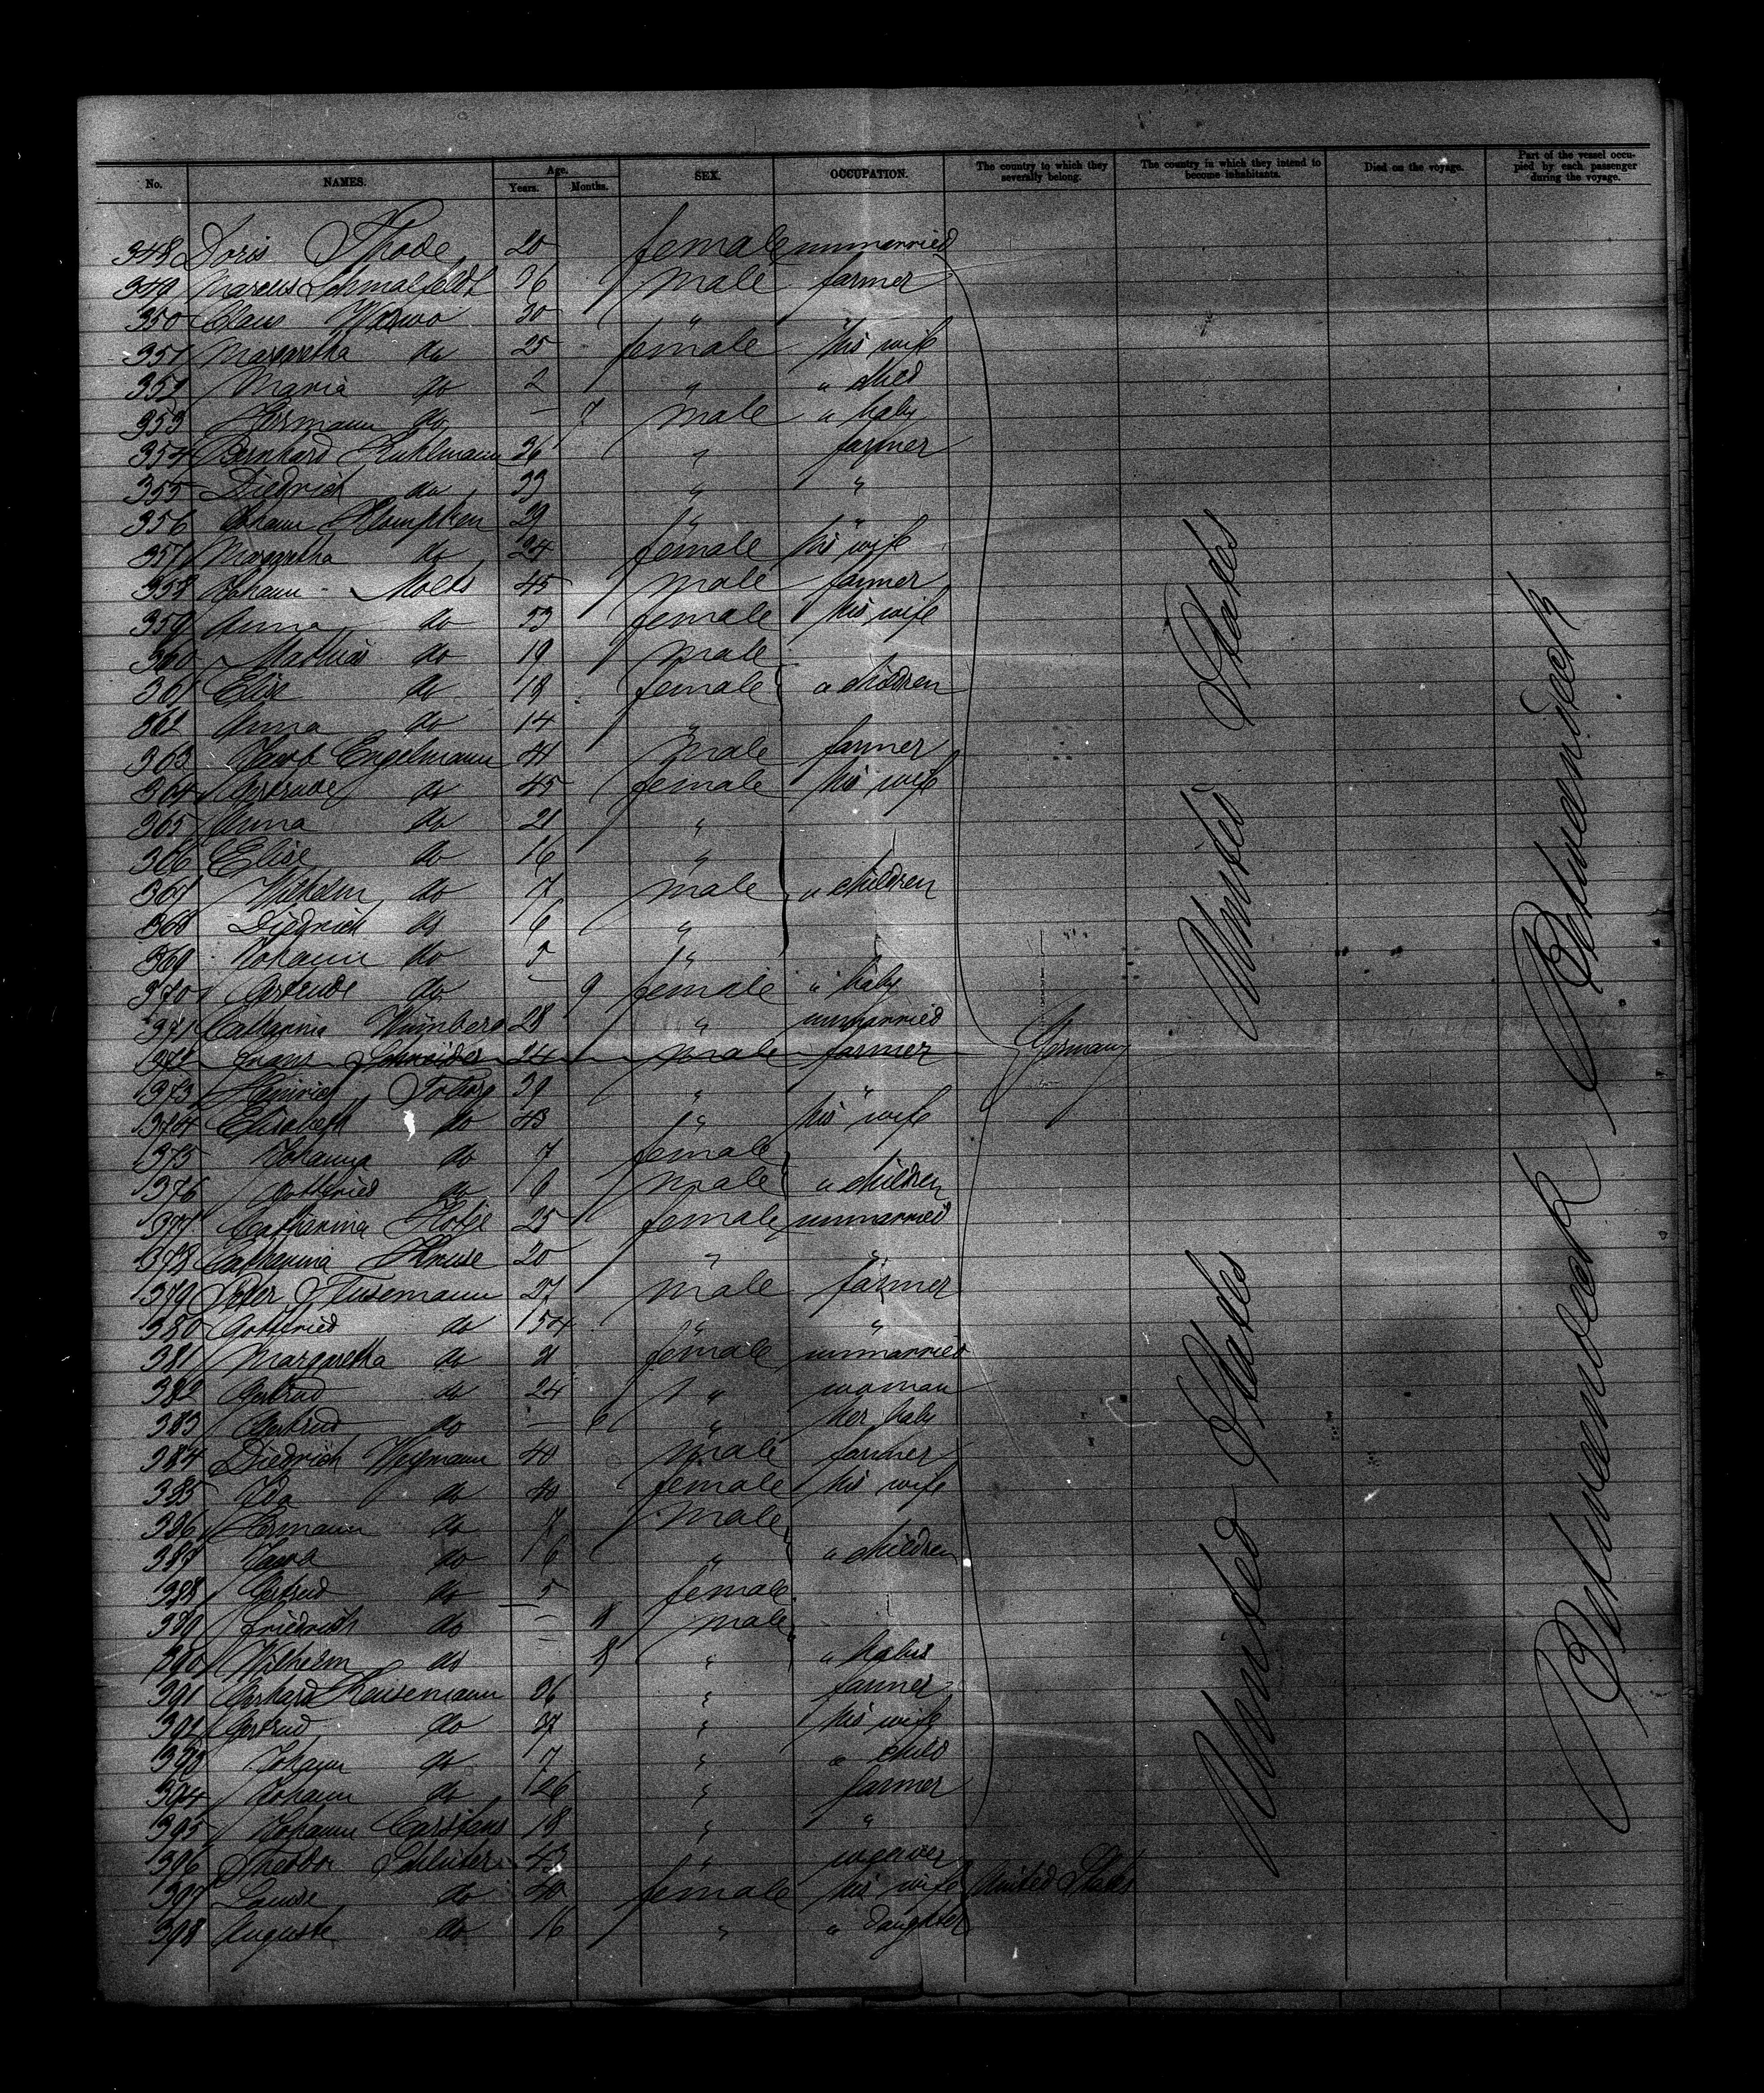 No. NAMES. Age. Years. Months. SEX. OCCUPATION. The country to which they severally belong. The country in which they intend to become inhabitants. Died on the voyage. Part of the vessel occupied by each passenger during the voyage.
348 Doris Thode 20 female unmarried
349 Marcus Schmalfeldt 36 male farmer
350 Claus 30 "
351 Margaretha do 25 female his wife
352 Maria do 2 " " child
353 Hermann do — 7 male " baby
354 Bernhard Kuhlmann 36 " farmer
355 Diedrich do 33 " "
356 Johann Klampken 29 " "
357 Margaretha do 24 female his wife
358 Johann 45 male farmer
359 Anna do 53 female his wife
360 Mathias do 19 male
361 Elise do 18 female " children
362 Anna do 14 "
363 Jacob Engelmann 41 male farmer
364 Gertrude do 45 female his wife
365 Anna do 21 "
366 Elise do 16 "
367 Wilhelm do 7 male " children
368 Diedrich do 6 "
369 Johann do 5 "
370 Gertrude do — 9 female " baby
371 Catharina 28 " unmarried
372 Franz Schneider 24 male farmer
Germany
373 Heinrich 39 " "
374 Elisabeth do 43 " his wife
375 Johanna do 7 female
376 Gottfried do 6 male " children
377 Catharina 25 female unmarried
378 Catharina Kruse 20 " "
379 Peter 27 male farmer
380 Gottfried do " "
381 Margaretha do 21 female unmarried
382 Gertrud do 24 " woman
383 Gertrud do — 6 " her baby
384 Diedrich Wegmann 40 male farmer
385 Ida do 40 female his wife
386 Hermann do 7 male
387 Jacob do 6 " " children
388 Gertrud do 5 female
389 Friedrich do — male
390 Wilhelm do — 8 " " babies
391 Gerhard 36 " farmer
392 Gertrud do 37 " his wife
393 Johann do 7 " " child
394 Johann do 26 " farmer
395 Johann Carstens 18 " "
396 Theodor Schluter 43 " weaver
397 Louise do 40 female his wife United States
398 Auguste do 16 " " daughter
United States
United States
Betweendeck
Betweendeck